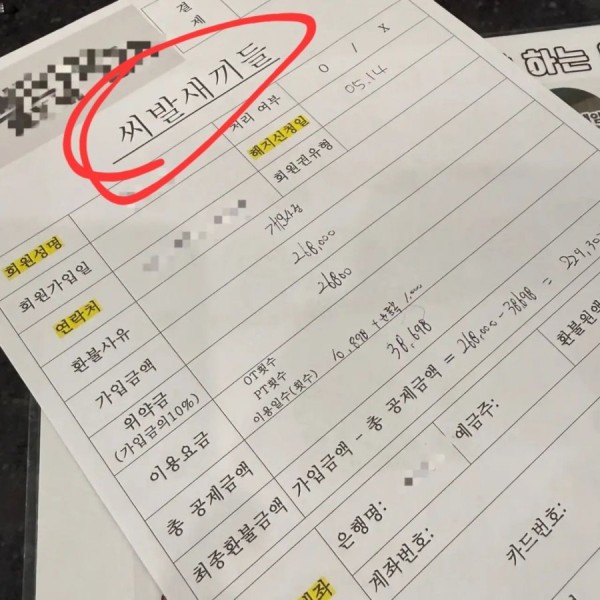 결
제
씨발새끼들
하는
처리 여부
O / X
해지신청일
05.14
회원권유형
회원성명
회원가입일
연락처
환불사유
개인사정
가입금액
268,000
위약금
(가입금의10%)
26800
이용요금
OT횟수
PT횟수
이용일수(횟수)
10,898 + 1,000
총 공제금액
38,698
최종환불금액
가입금액 - 총 공제금액 = 268,000 - 38,698 = 229,30
환불원액
은행명:
예금주:
계좌번호:
카드번호:
계좌